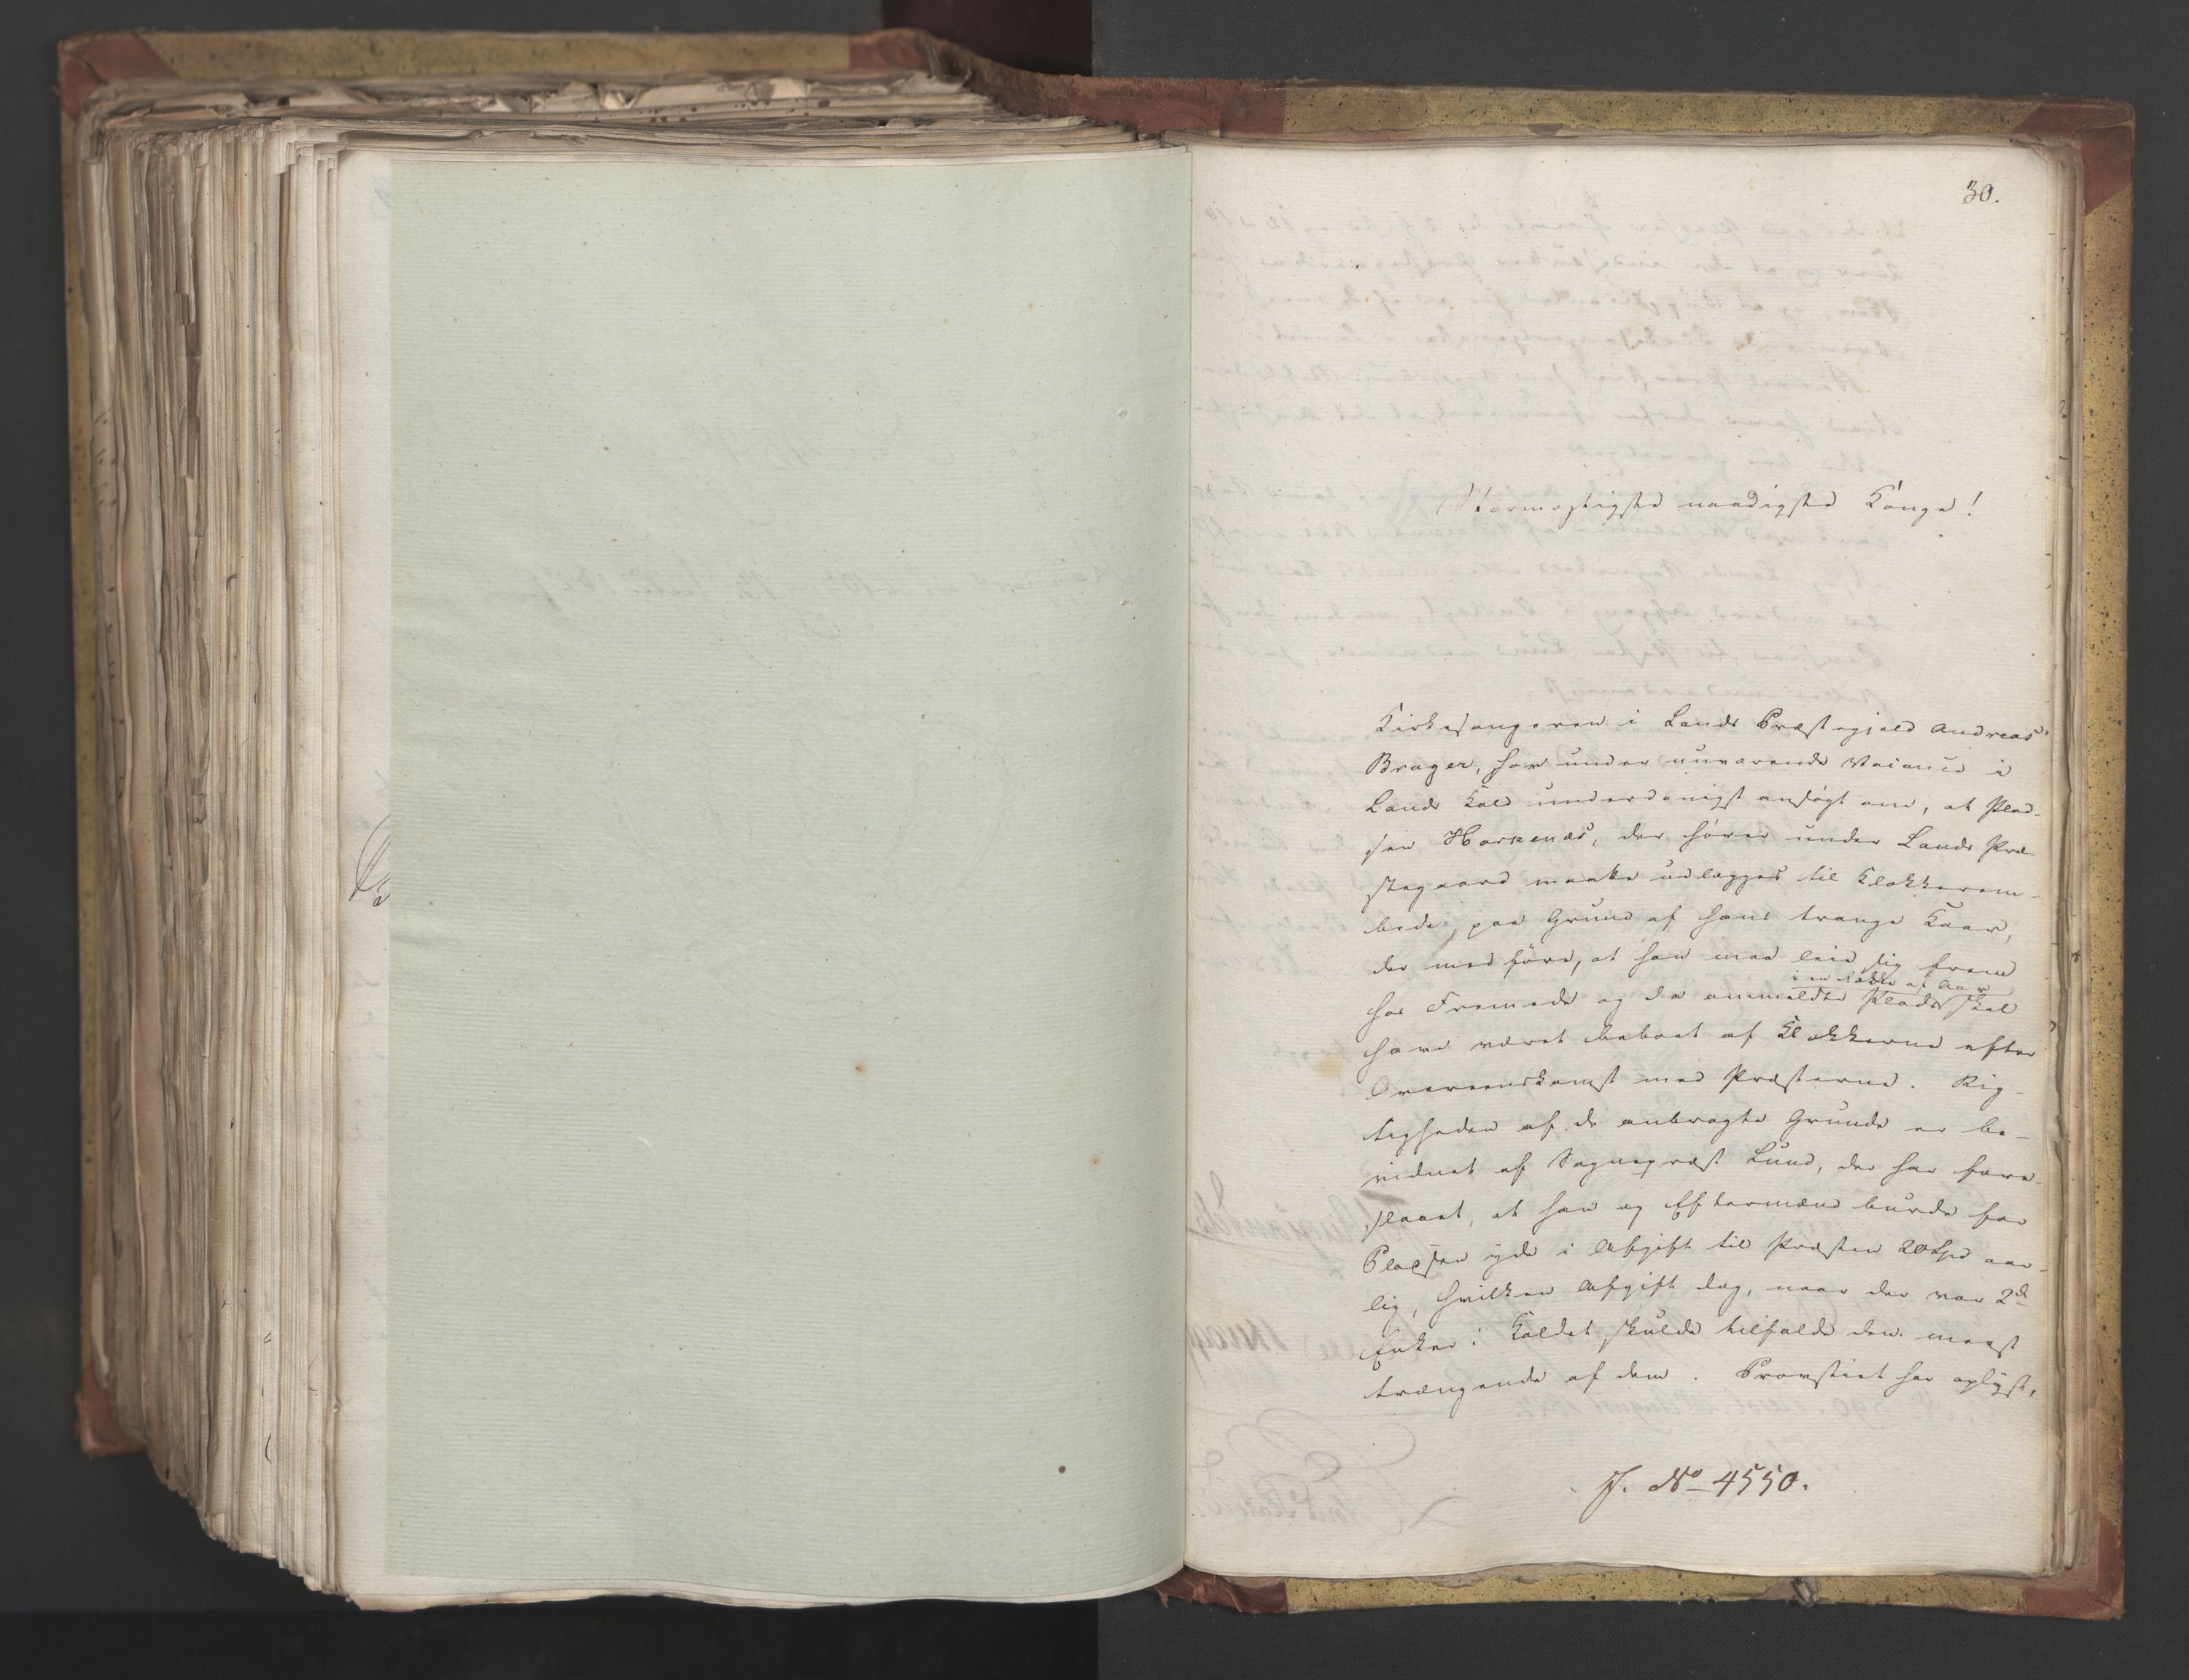 30.
Stormægtigste naadigste Konge!
Kirkesangeren i Lands Præstegjeld Andreas
Brager, har under nuværende Vacance i
Lands Kald underdanigst ansøgt om, at Plad-
sen Horkenæs, der hører under Lands Præ-
stegaard maatte udlægges til Klokkerem-
bedet, paa Grund af hans trange Kaar,
der medføre, at han maa leie sig frem
i en Række af Aar
hos Fremmede og da ommeldte Plads skal
have været beboet af Klokkerne efter
Overeenskomst med Præsterne. Rig-
tigheden af de anbragte Grunde er be-
vidnet af Sognepræst Lund, der har fore-
slaaet, at han og Eftermænd burde for
Pladsen yde i Afgift til Præsten 20 Spd aar-
lig, hvilken Afgift dog, naar der var 2de
Enker i Kaldet skulde tilfalde den meest
trængende af dem. Provstiet har oplyst,
J. No 4550.